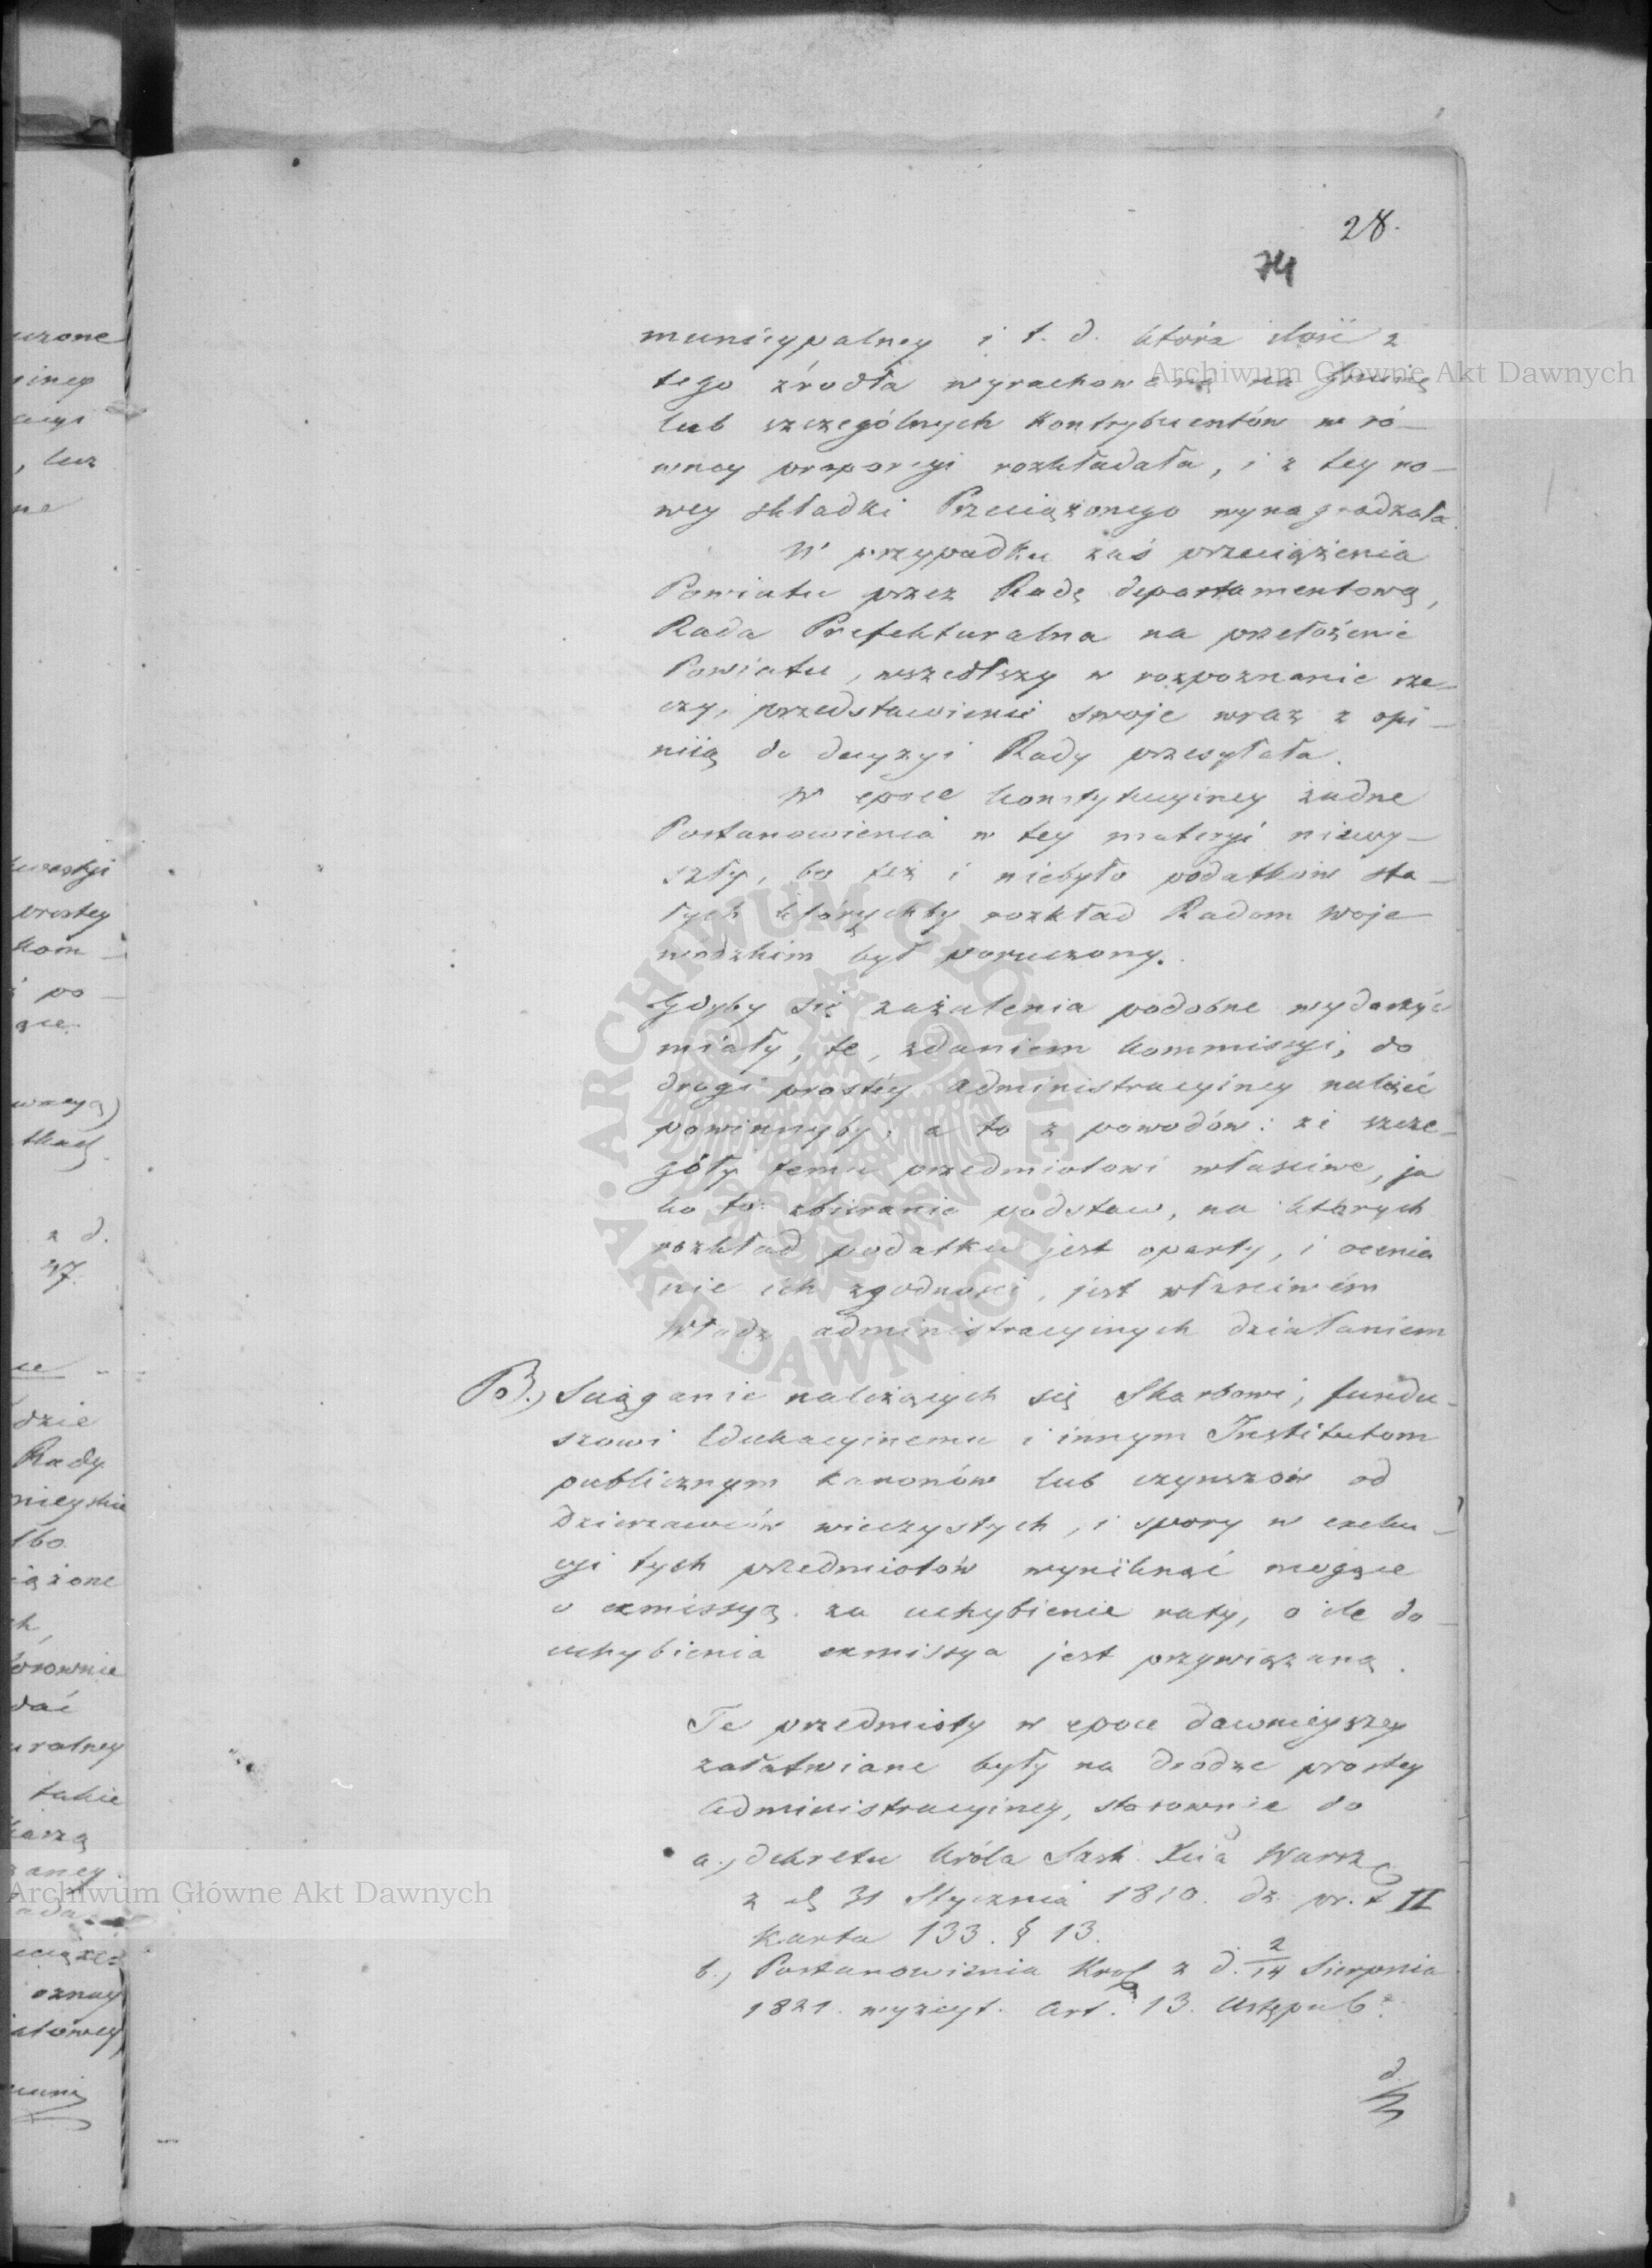 28.
74
municypalney i t. d. która ilość z
tego źrodła wyrachowaną na Gminę
lub szczególnych Kontrybuentów w ró-
wney proporcyi rozkładała, i z tey no-
wey składki Przeciążonego wynagradzała.
W przypadku zaś przeciążenia
Powiatu przez Radę departamentową,
Rada Prefekturalna na przełożenie
Powiatu, wszedłszy w rozpoznanie rze-
czy, przedstawienie swoje wraz z opi-
niią do decyzyi Rady przesyłała.
W epoce konstytucyiney żadne
Postanowienia w tey materyi niewy-
szły, bo też i niebyło podatków sta-
łych którychby rozkład Radom Woje-
wodzkim był poruczony.
Gdyby się zażalenia podobne wydarzyć
miały, te, zdaniem Kommissyi, do
drogi prostéy administracyiney należéć
powinnyby, a to z powodów: że szcze-
góły temu przedmiotowi właściwe, ja
ko to: zbieranie podstaw, na których
rozkład podatku jest oparty, i ocenia
nie ich zgodności, jest właściwém
Władz administracyinych działaniem
B.) Sciąganie należących się Skarbowi, fundu-
szowi Edukacyinemu i innym Institutom
publicznym kanonów lub czynszów od
Dzierzawców wieczystych, i spory w exeku-
cyi tych przedmiotów wyniknąć mogące
o exmissyą za uchybienie raty, o ile do
uchybienia exmissya jest przywiązaną.
Te przedmioty w epoce dawnieyszey
załatwiane były na drodze prostey
Administracyiney, stosownie do
a., dekretu Króla Sask. Xcia Warsz
z d. 31 Stycznia 1810. dz. pr. t II
karta 133. § 13.
b., Postanowienia Król z d. 2/14 Sierpnia
1821. wyżcyt. Art. 13. Ustępu b.
Archiwum Główne Akt Dawnych
Archiwum Główne Akt Dawnych
ARCHIWUM GŁÓWNE AKT DAWNYCH